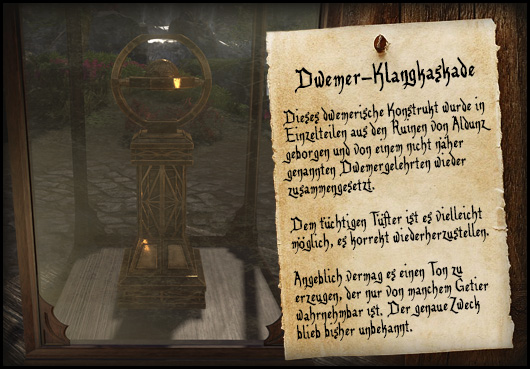 Dwemer-Klangkaskade
Dieses dwemerische Konstrukt wurde in
Einzelteilen aus den Ruinen von Aldunz
geborgen und von einem nicht näher
genannten Dwemergelehrten wieder
zusammengesetzt.
Dem tüchtigen Tüftler ist es vielleicht
möglich, es korrekt wiederherzustellen.
Angeblich vermag es einen Ton zu
erzeugen, der nur von manchem Getier
wahrnehmbar ist. Der genaue Zweck
blieb bisher unbekannt.